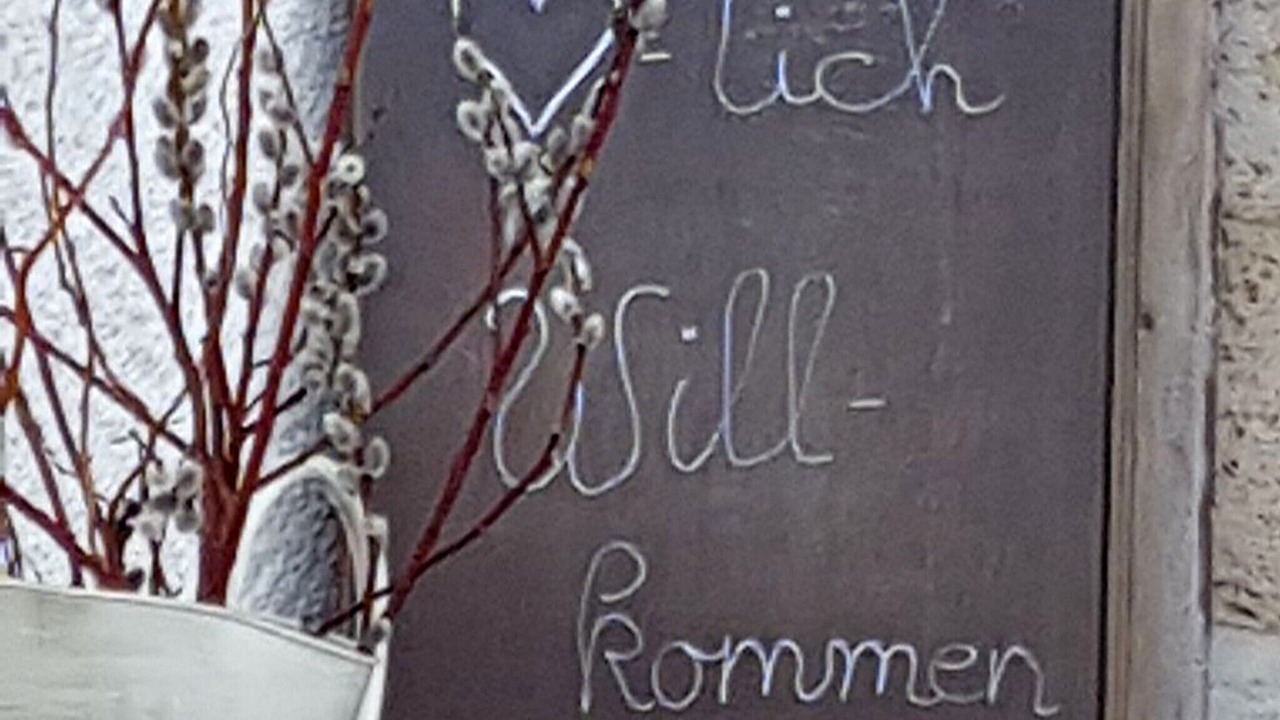 - lich
Will-
kommen